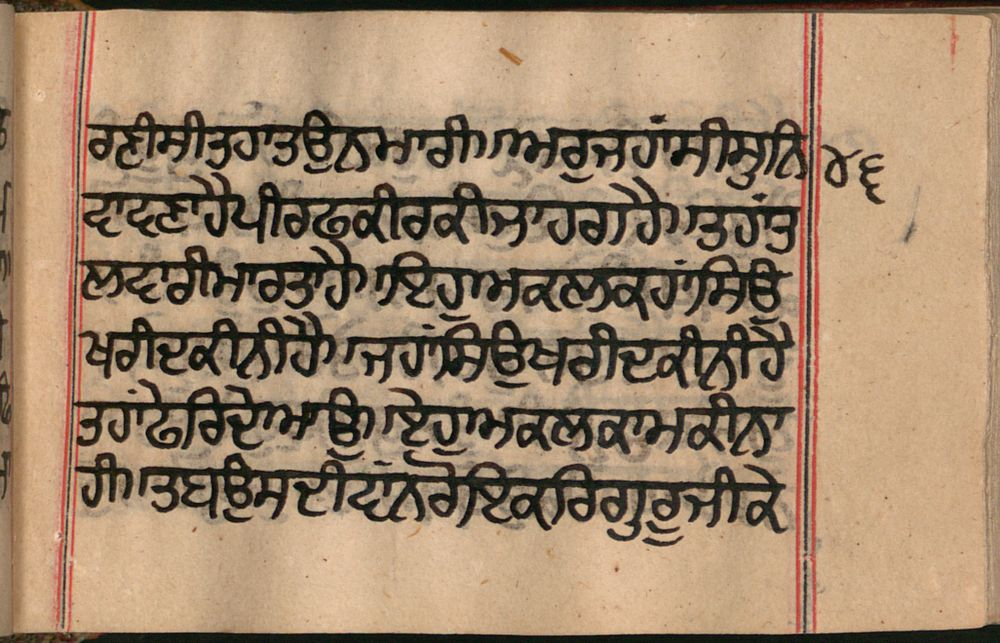 ਰਣੀਸੀਤਹਾਤਉਨਮਾਰੀ॥ਅਰੁਜਹਾਂਸੀਸੁਨਿ ੪੬
ਦਾਵਣਾਹੈਪੀਰਫਕੀਰਕੀਜਾਹਗਹੈ॥ਤਹਾਂਤ
ਲਵਾਰੀਮਾਰਤਾਹੈ॥ਇਹੁਅਕਲਕਹਾਂਸਿਉ
ਖਰੀਦਕੀਨੀਹੈ॥ਜਹਾਂਸਿਉਖਰੀਦਕੀਨੀਹੈ
ਤਹਾਂਫੇਰਿਦੇਆਉ॥ਏਹੁਅਕਲਕਾਮਕੀਨਾ
ਹੀ॥ਤਬਉਸਦੀਵਾਂਨਰੋਇਕਰਿਗੁਰੂਜੀਕੇ